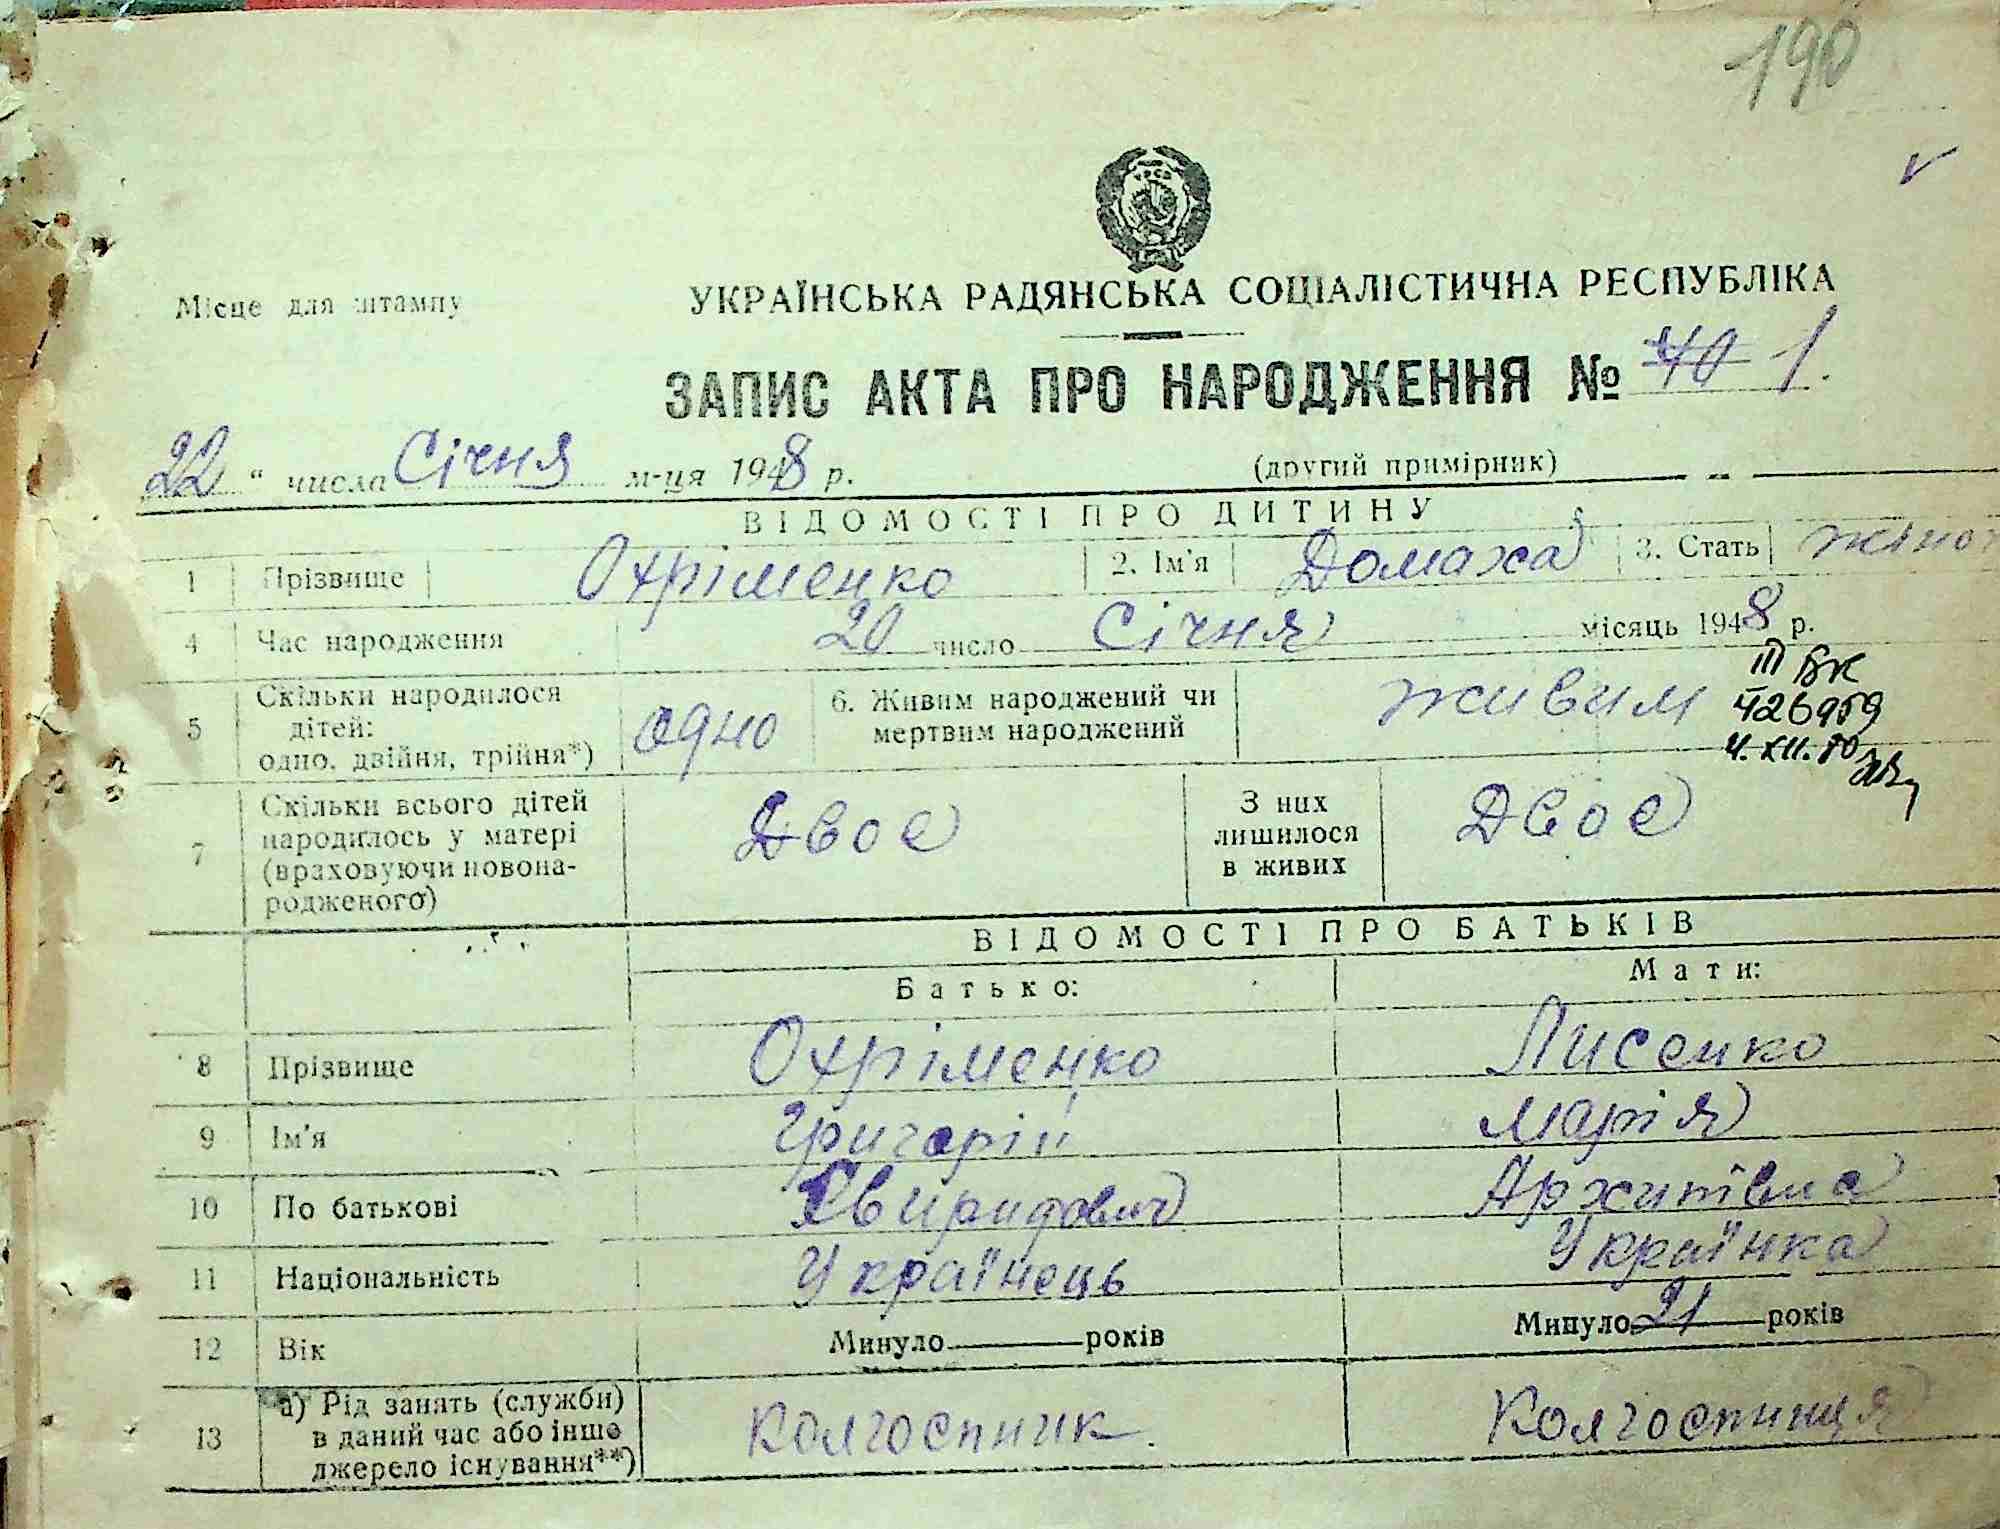 190
УКРАЇНСЬКА РАДЯНСЬКА СОЦІАЛІСТИЧНА РЕСПУБЛІКА
Місце для штампу
ЗАПИС АКТА ПРО НАРОДЖЕННЯ № 40 1.
22 " числа Січня м-ця 1948 р. (другий примірник)
ВІДОМОСТІ ПРО ДИТИНУ
1 Прізвище Охріменко 2. Ім'я Домаха 3. Стать жіноч
4 Час народження 20 число Січня місяць 1948 р.
5 Скільки народилося дітей: одно, двійня, трійня*) одно 6. Живим народжений чи мертвим народжений живим
III БК
426959
4.XII.80
7 Скільки всього дітей народилось у матері (враховуючи новонародженого) Двоє З них лишилося в живих Двоє
ВІДОМОСТІ ПРО БАТЬКІВ
Батько: Мати:
8 Прізвище Охріменко Лисенко
9 Ім'я Григорій Марія
10 По батькові Свиридович Архипівна
11 Національність Українець Українка
12 Вік Минуло років Минуло 21 років
13 а) Рід занять (служби) в даний час або інше джерело існування**) Колгоспник. Колгоспниця